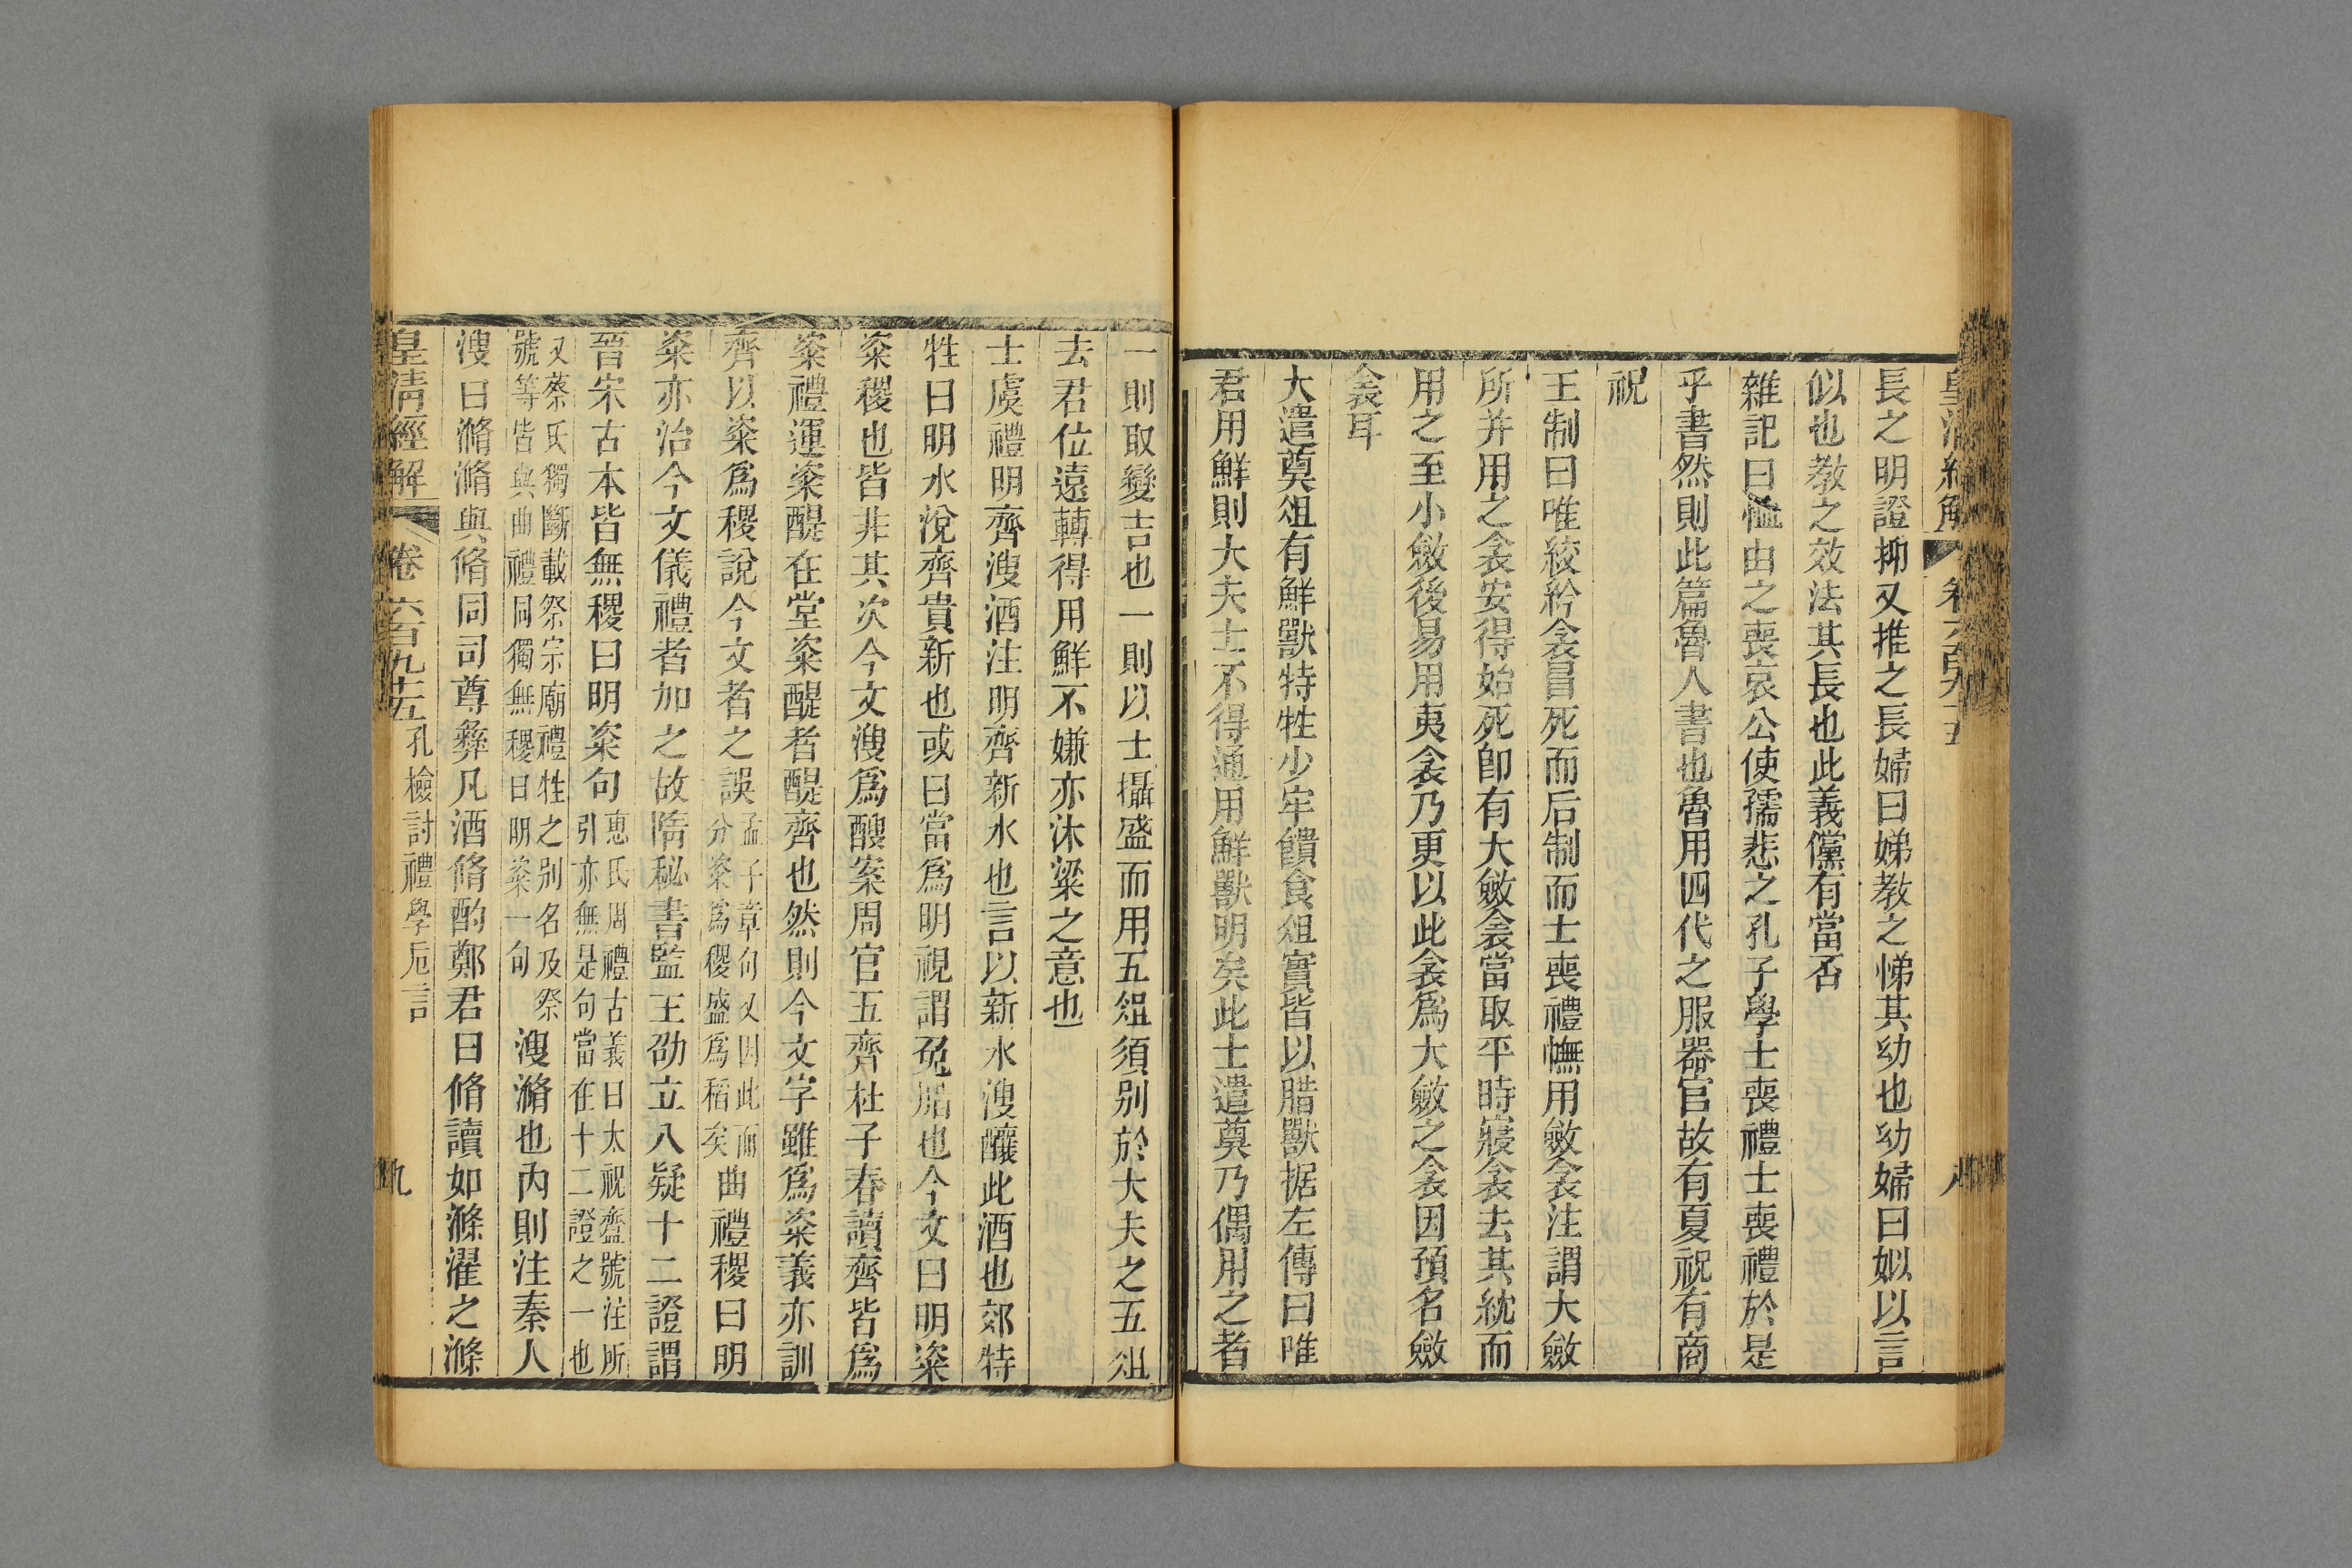 皇清經解 卷六百九十五 八
長之明證抑又推之長婦曰娣教之悌其幼也幼婦曰姒以言
似也教之效法其長也此義儻有當否
雜記曰恤由之喪哀公使孺悲之孔子學士喪禮士喪禮於是
乎書然則此篇魯人書也魯用四代之服器官故有夏祝有商
祝
王制曰唯絞紟衾冒死而后制而士喪禮幠用斂衾注謂大斂
所并用之衾安得始死即有大斂衾當取平時寢衾去其紞而
用之至小斂後易用夷衾乃更以此衾爲大斂之衾因預名斂
衾耳
大遣奠俎有鮮獸特牲少牢饋食俎實皆以腊獸据左傳曰唯
君用鮮則大夫士不得通用鮮獸明矣此士遣奠乃偶用之者
一則取變吉也一則以士攝盛而用五俎須别於大夫之五俎
去君位遠轉得用鮮不嫌亦沐粱之意也
士虞禮明齊溲酒注明齊新水也言以新水溲釀此酒也郊特
牲曰明水涗齊貴新也或曰當爲明視謂兔腊也今文曰明粢
粢稷也皆非其次今文溲爲醙案周官五齊杜子春讀齊皆爲
粢禮運粢醍在堂粢醍者醍齊也然則今文字雖爲粢義亦訓
齊以粢爲稷說今文者之誤孟子章句又因此而分粢爲稷盛爲稻矣曲禮稷曰明
粢亦治今文儀禮者加之故隋秘書監王劭立八疑十二證謂
晉宋古本皆無稷曰明粢句惠氏周禮古義曰大祝齍號注所引亦無是句當在十二證之一也
又蔡氏獨斷載祭宗廟禮牲之别名及祭號等皆與曲禮同獨無稷曰明粢一句溲滫也內則注秦人
溲曰滫滫與脩同司尊彝凡酒脩酌鄭君曰脩讀如滌濯之滌
皇清經解 卷六百九十五 孔檢討禮學卮言 九